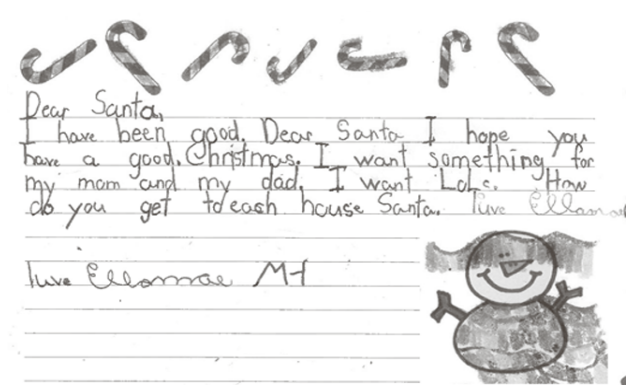 Dear Santa,
I have been good. Dear Santa I hope you
have a good. Christmas. I want something for
my mom and my dad. I want LoLs. How
do you get to each house Santa. Luve Ellamae
Luve Ellamae M-H